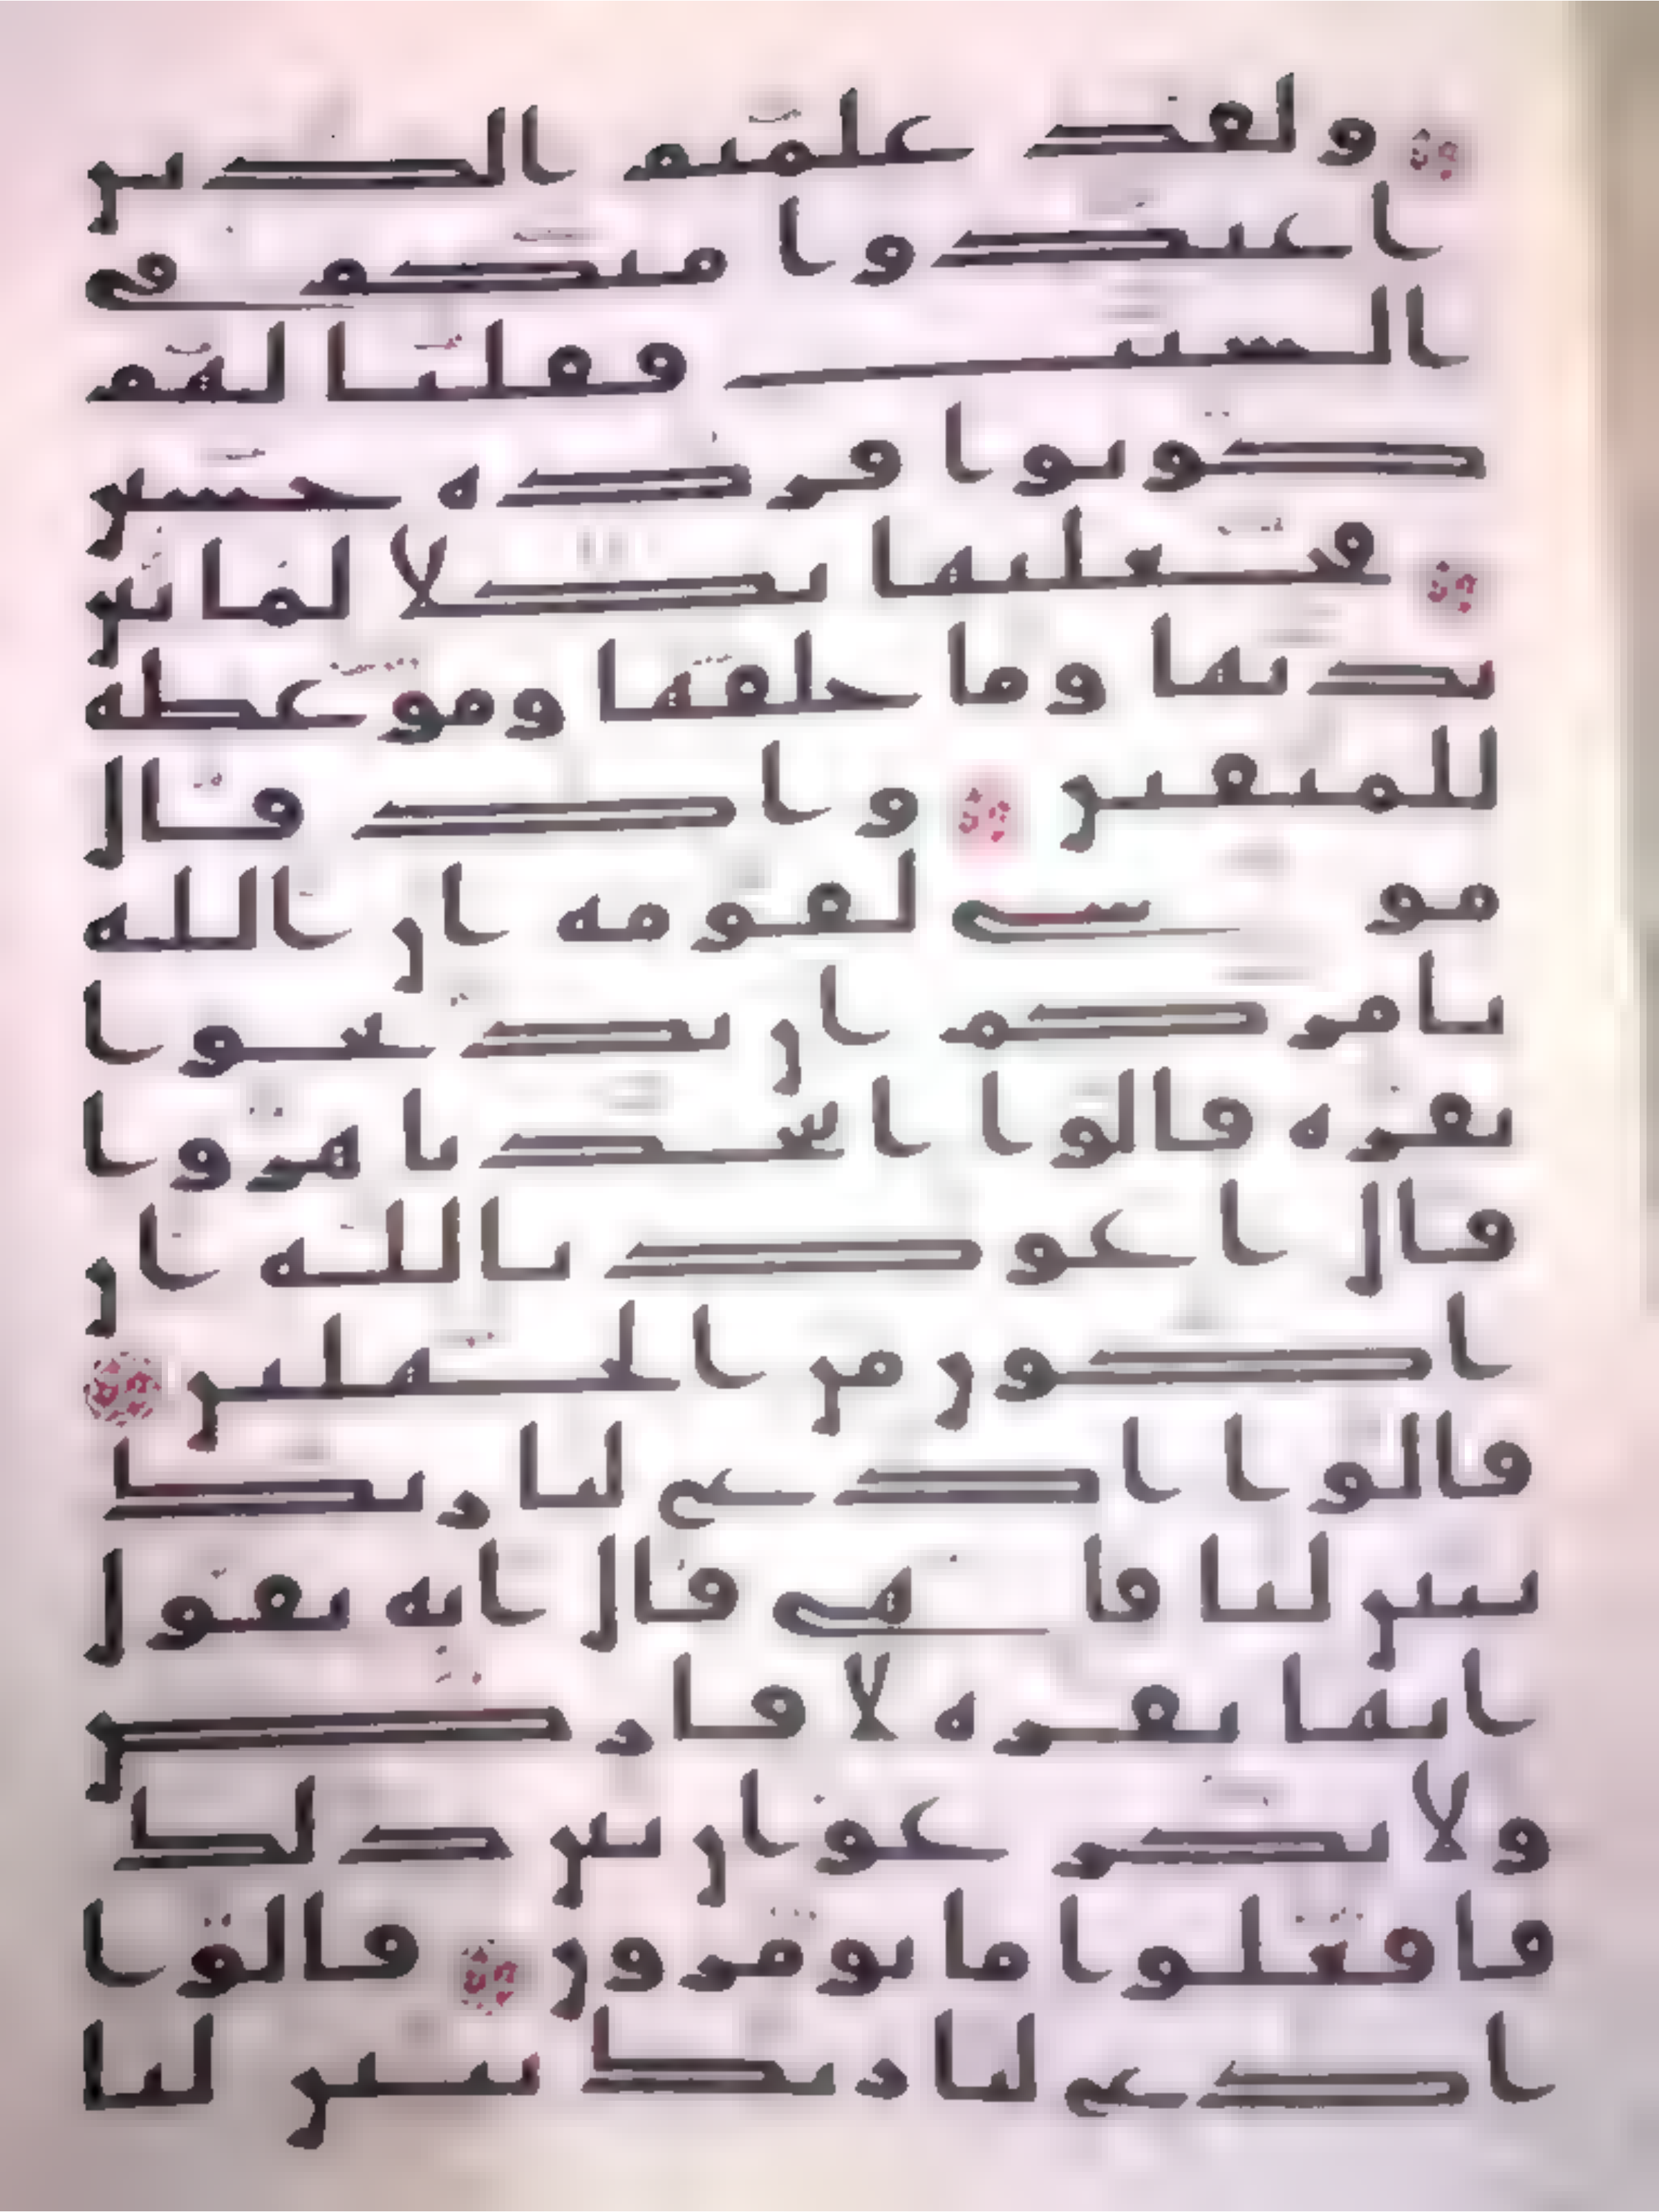 ولقد علمتم الذين
اعتدوا منكم في
السبت فقلنا لهم
كونوا قردة خسين
فجعلنها نكلا لما بين
يديها وما خلفها وموعظة
للمتقين واذ قال
موسى لقومه ان الله
يامركم ان تذبحوا
بقرة قالوا اتتخذنا هزوا
قال اعوذ بالله ان
اكون من الجهلين
قالوا ادع لنا ربك
يبين لنا ما هي قال انه يقول
انها بقرة لا فارض
ولا بكر عوان بين ذلك
فافعلوا ما تومرون قالوا
ادع لنا ربك يبين لنا